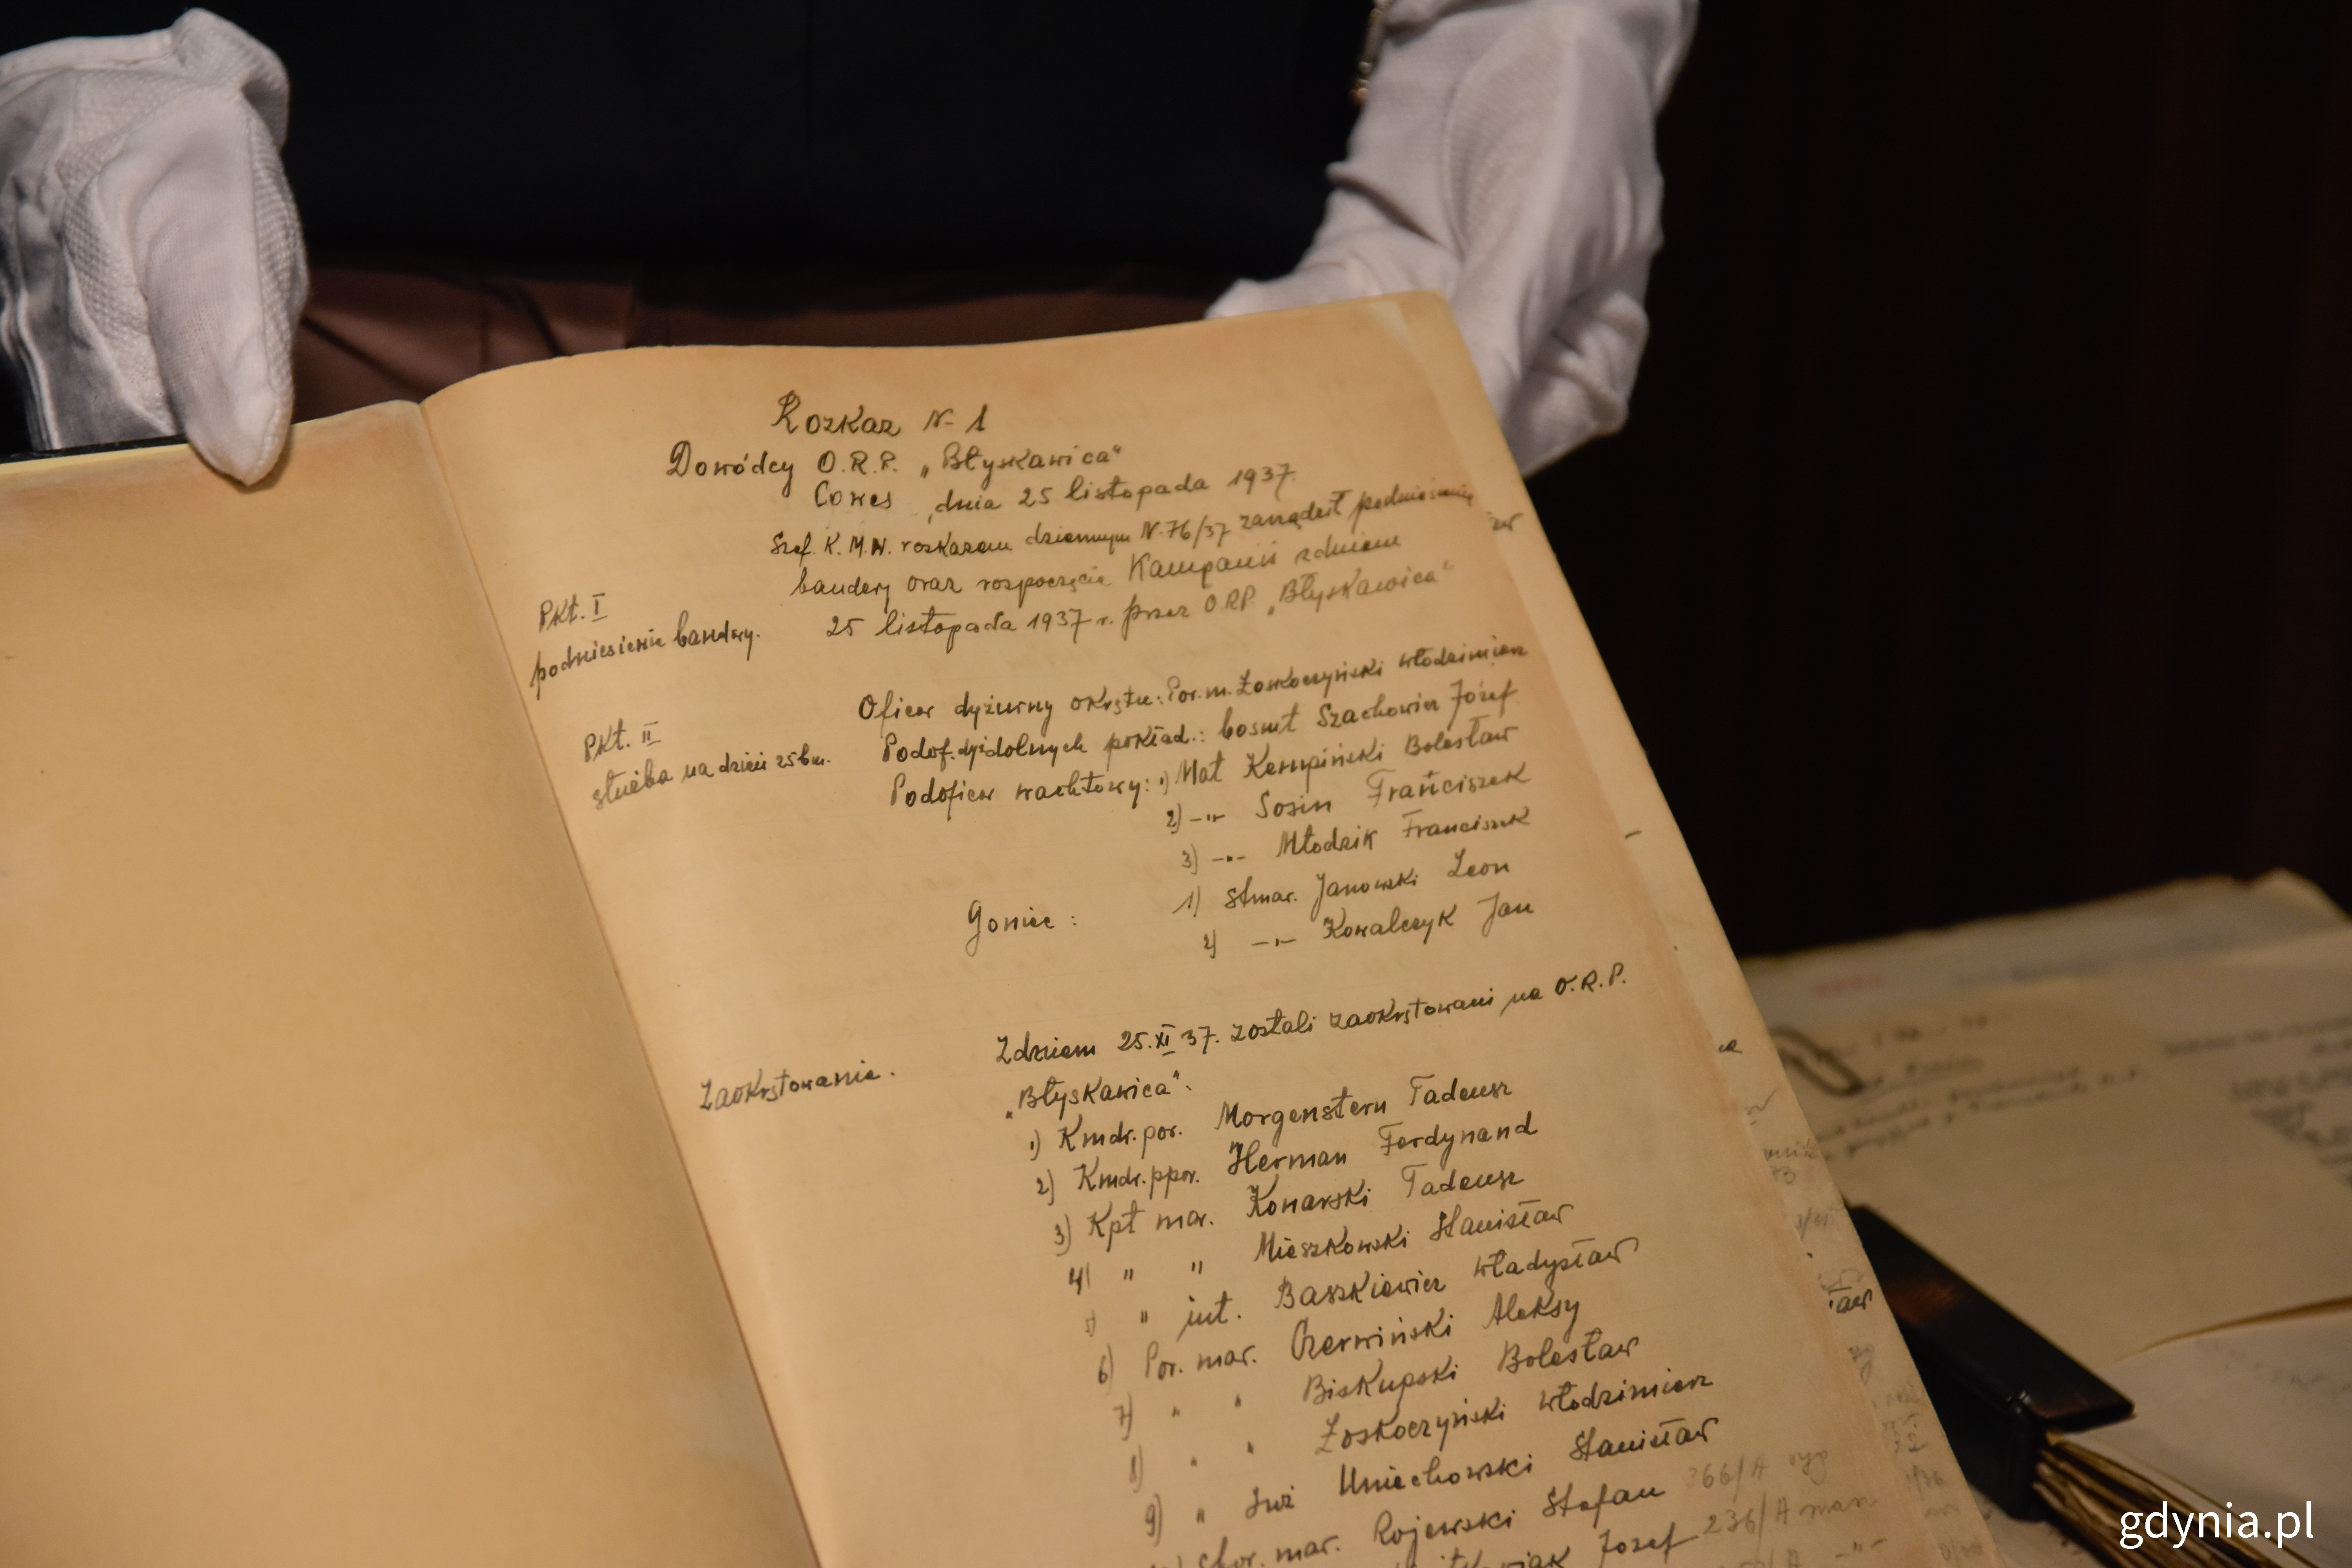 Rozkaz N- 1
Dowódcy O.R.P. „Błyskawica"
Cowes, dnia 25 listopada 1937.
Szef. K.M.W. rozkazem dziennym N-76/37 zarządził podniesienie
bandery oraz rozpoczęcie Kampanii z dniem
25 listopada 1937 r. przez O.R.P. „Błyskawica"
Pkt. I
podniesienie bandery.
Pkt. II
służba na dzień 25 b.m.
Oficer dyżurny okrętu: Por. m. Łoskoczyński Włodzimierz
Podof. dyż. dolnych pokład.: bosmt Szachowicz Józef
Podoficer wachtowy: 1) Mat Kempiński Bolesław
2) -„- Sosin Franciszek
3) -„- Młodzik Franciszek
Goniec: 1) stmar. Janowski Leon
2) -„- Kowalczyk Jan
Zaokrętowanie.
Z dniem 25.XI 37. zostali zaokrętowani na O.R.P.
„Błyskawica".
1) Kmdr. por. Morgenstern Tadeusz
2) Kmdr. ppor. Herman Ferdynand
3) Kpt mar. Konarski Tadeusz
4) " " Mieszkowski Stanisław
5) " int. Baszkiewicz Władysław
6) Por. mar. Czerwiński Aleksy
7) " " Biskupski Bolesław
8) " " Łoskoczyński Włodzimierz
9) " inż Uniechowski Stanisław
chor. mar. Rojewski Stefan 366/A
Józef 236/A mar
gdynia.pl